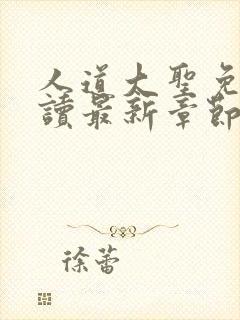 人道大聖免
讀最新章節
徐蕾